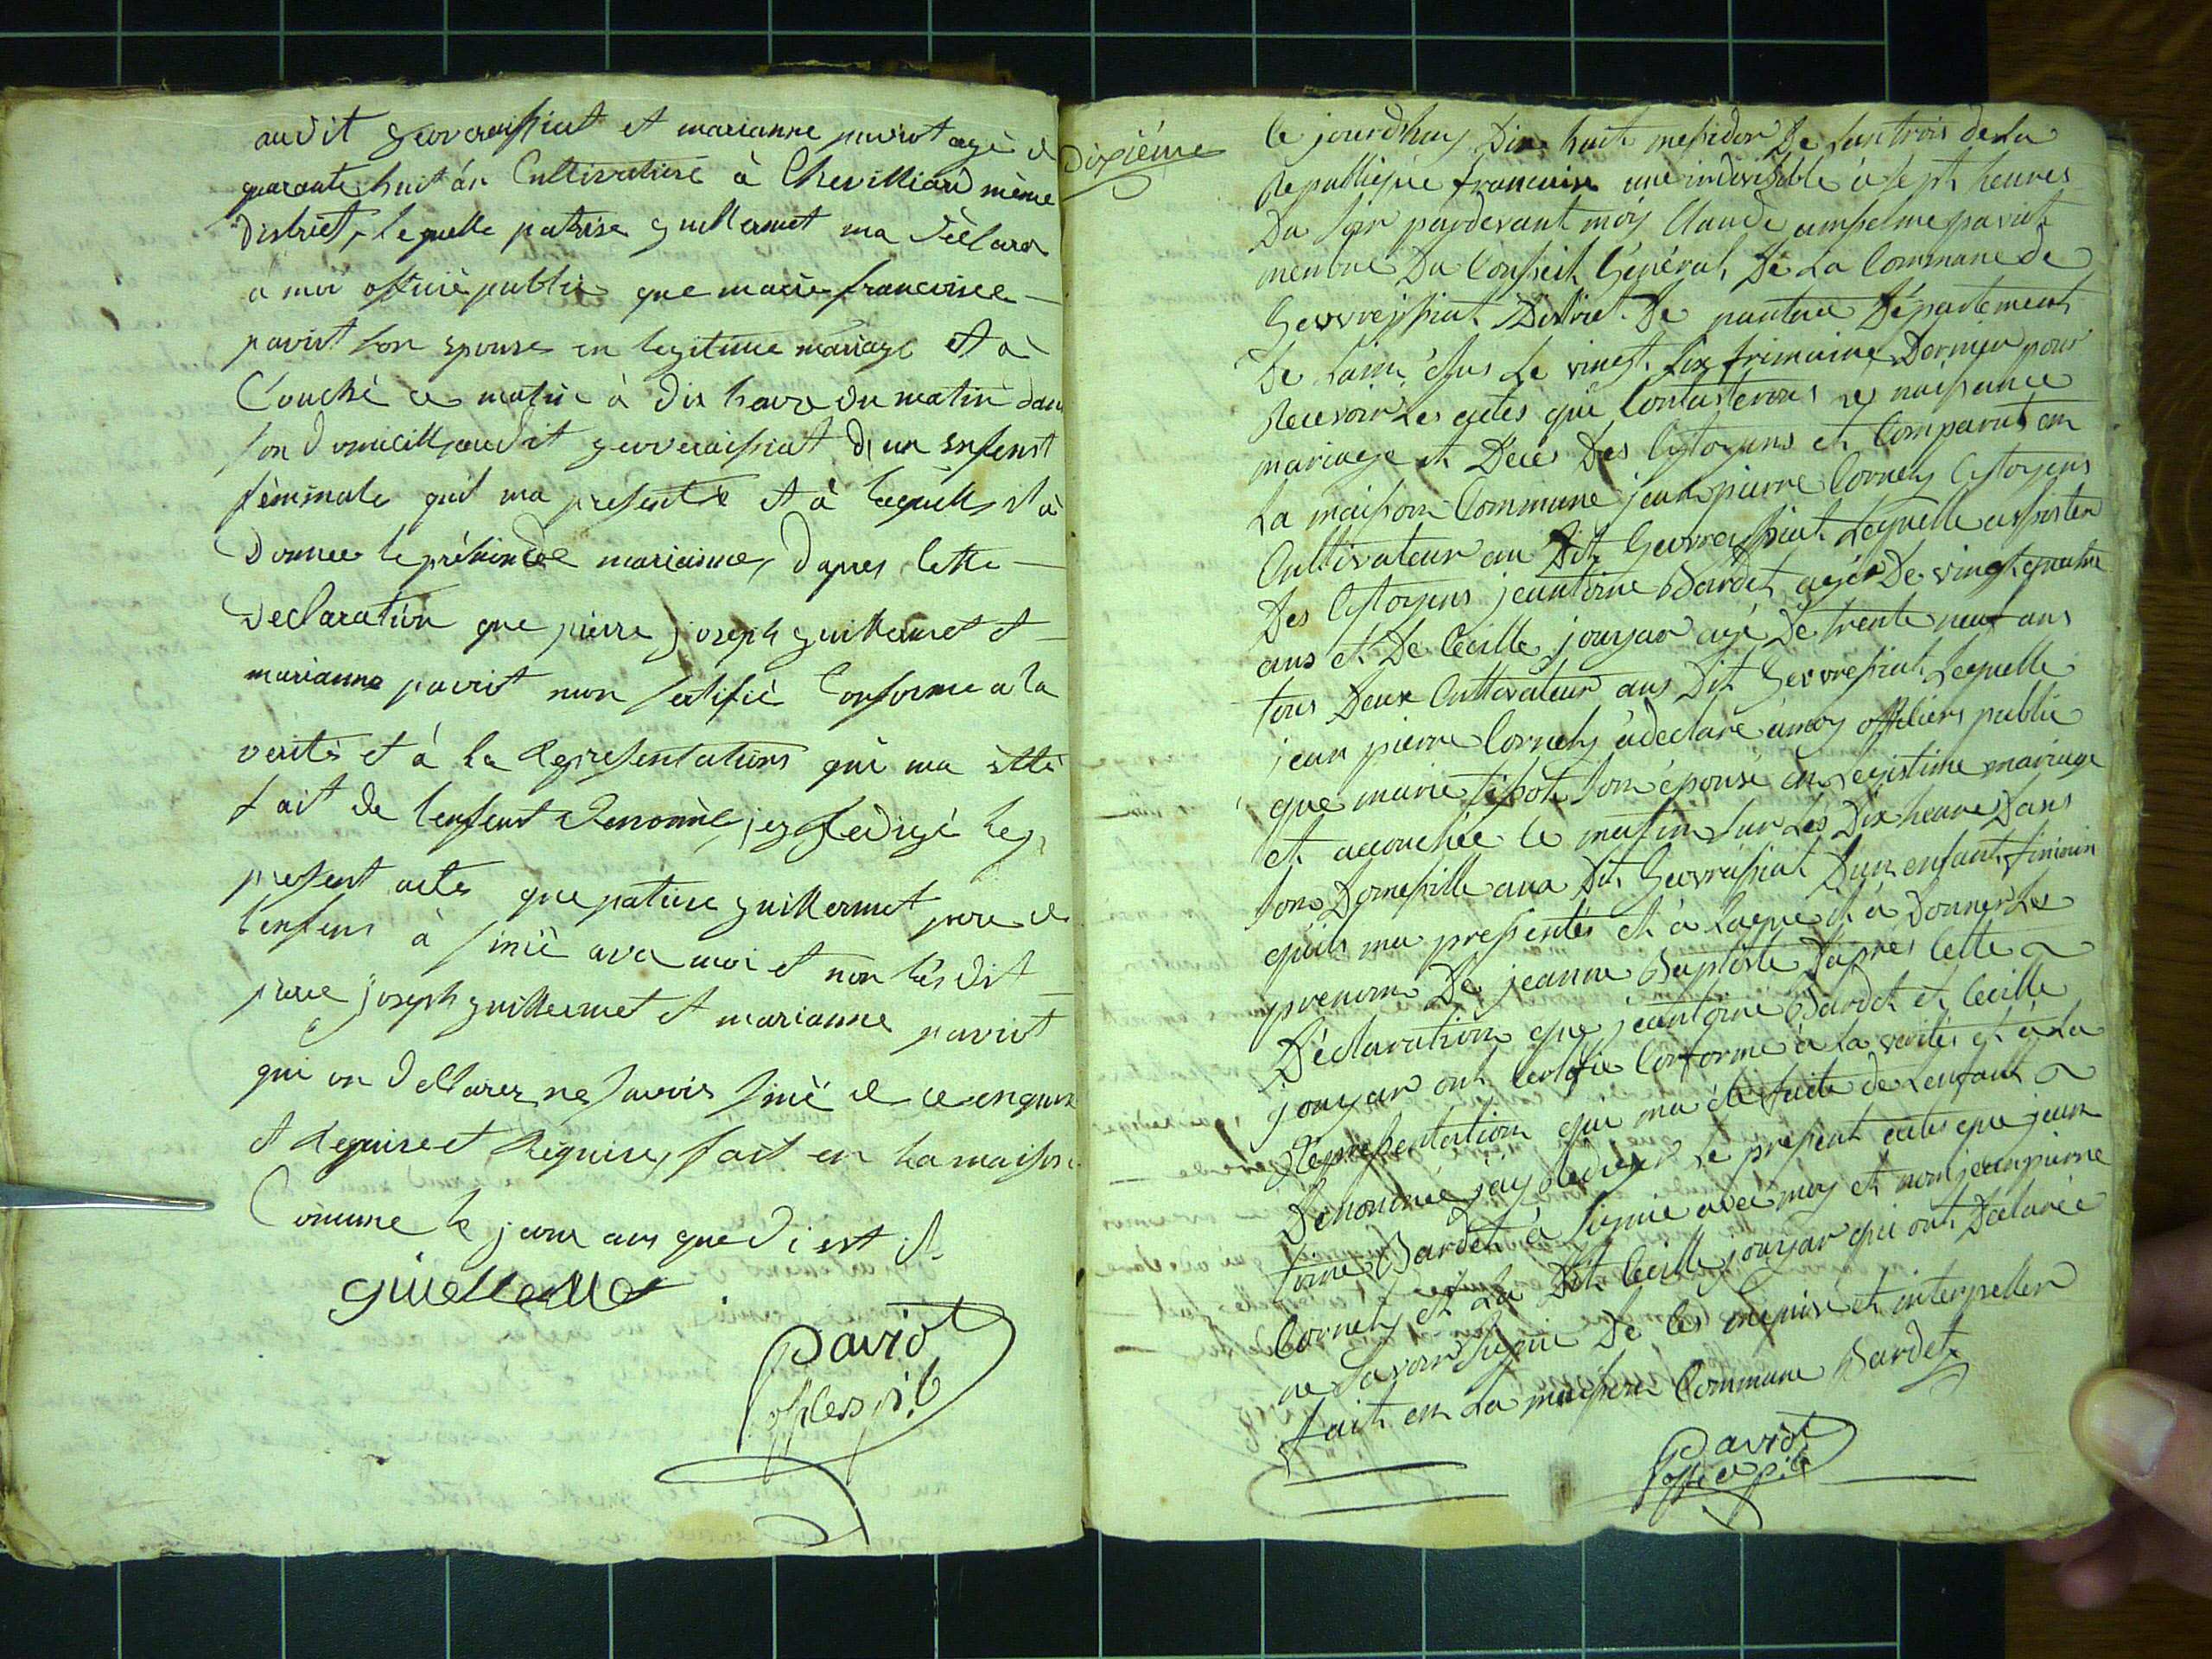 audit gevreissiat et marianne pavirot agé d
quarante huit án Cultivatrise à Chevilliard méme
district, lequelle patrise guillermet ma dèclarer
à moi officié public que marie francoisee
pavirt son epouse en legitime mariage et à
Couché ce matin à dix heure du matin dans
son domicille audit gevreissiat d'un enfent
féminale quil ma presenté et à laquelle il à
Donnee le prénom de marianne, dapres cette
declaration que pierre joseph guillermet et
marianne pavirt mon sertifié Conforme a la
verité et à la Representations qui ma étté
fait de lenfent denommé, jez redigé les
present actes que patrise guillermet pere de
lenfens à sinié avec moi et non lesdit
pierre joseph guillermet et marianne pavirt
qui on declarez ne savoir sinié de ce enquis
et Requise et Requise, fait en la maison
Comune le jour ans que di est
guillermet
Pavirot
offier p.b
Dixiéme
le jourdhuy Dix huit mesidor De lan trois de La
Republique francaise une indivisible à sept heures
Du soir pardevant moy Claude anselme paviot
membre Du Conseil Général De La Commune de
Gevvressiat District De nantua Département
De Lain élus Le vingt six frimaire Dernier pour
Recevoir Les actes qui Constaterons les naisance
mariage et Decé Des Cytoyens et Comparut en
La maison Commune jean pierre Cornely Cytoyens
Cultivateur au Dit Gevvressiat Lequelle assister
Des Cytoyens jeantoine Bardet agér De vingt quatre
ans et De Cécille jouyar agé De trente neuf ans
tous Deux Cultivateur aus Dit Gevvresiat Lequelle
jean pierre Cornely à declaré à moy officiers public
que marie tissot son épouse en Legistime mariage
et accouchée ce matin sur Les Dix heure Dans
son Domesille aux Dit Gevvressiat D'un enfant féminin
quils ma pressentés et à Laquel il à Donner Le
prenom De jeanne Baptiste D'aprés cette
Déclaration que jeantoine Bardet et Cécille
jouyar ont Certifie Conforme à La verités et à La
Representation qui ma été faite de Lenfant
Dénommée jay Rediger Le present actes que jean
toine Bardet à signié avec moy et non jeanpierre
Cornely et La Dit Cécille jouyar qui ont Déclarée
ne savoir signié De ces enquise et interpeller
fait en La maison Commune Bardet
Pavirot
office p.b